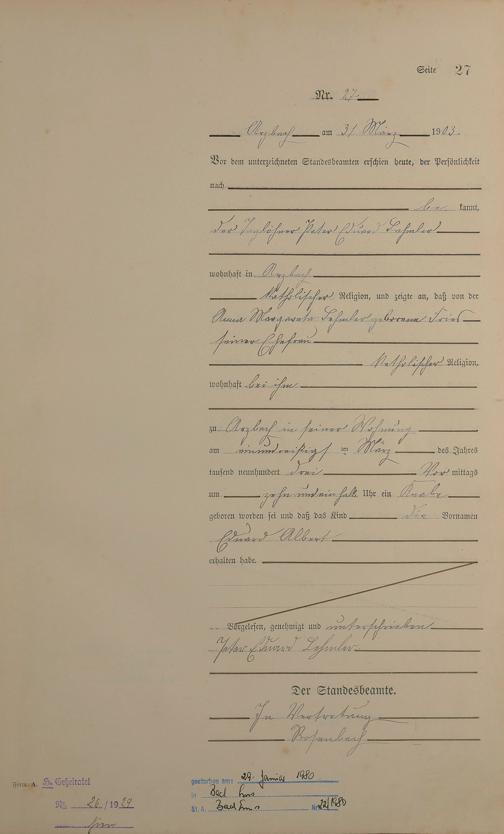 Seite 27
Nr. 27
Arzbach am 31 März 1903.
Vor dem unterzeichneten Standesbeamten erschien heute, der Persönlichkeit
nach
be kannt,
der Taglöhner Peter Eduard Lehmler
wohnhaft in Arzbach
katholischer Religion, und zeigte an, daß von der
Anna Margareta Lehmler geborene Fries
seiner Ehefrau
katholischer Religion,
wohnhaft bei ihm
zu Arzbach in seiner Wohnung
am einunddreißigsten März des Jahres
tausend neunhundert drei Vor mittags
um zehn und einhalb Uhr ein Knabe
geboren worden sei und daß das Kind die Vornamen
Eduard Albert
erhalten habe.
Vorgelesen, genehmigt und unterschrieben
Peter Eduard Lehmler
Der Standesbeamte.
In Vertretung
Rosenbach
gestorben am: 29. Januar 1980
in Bad Ems
St. A. Bad Ems Nr. 22/1980
H. Geheiratet
Nr. 26/1929